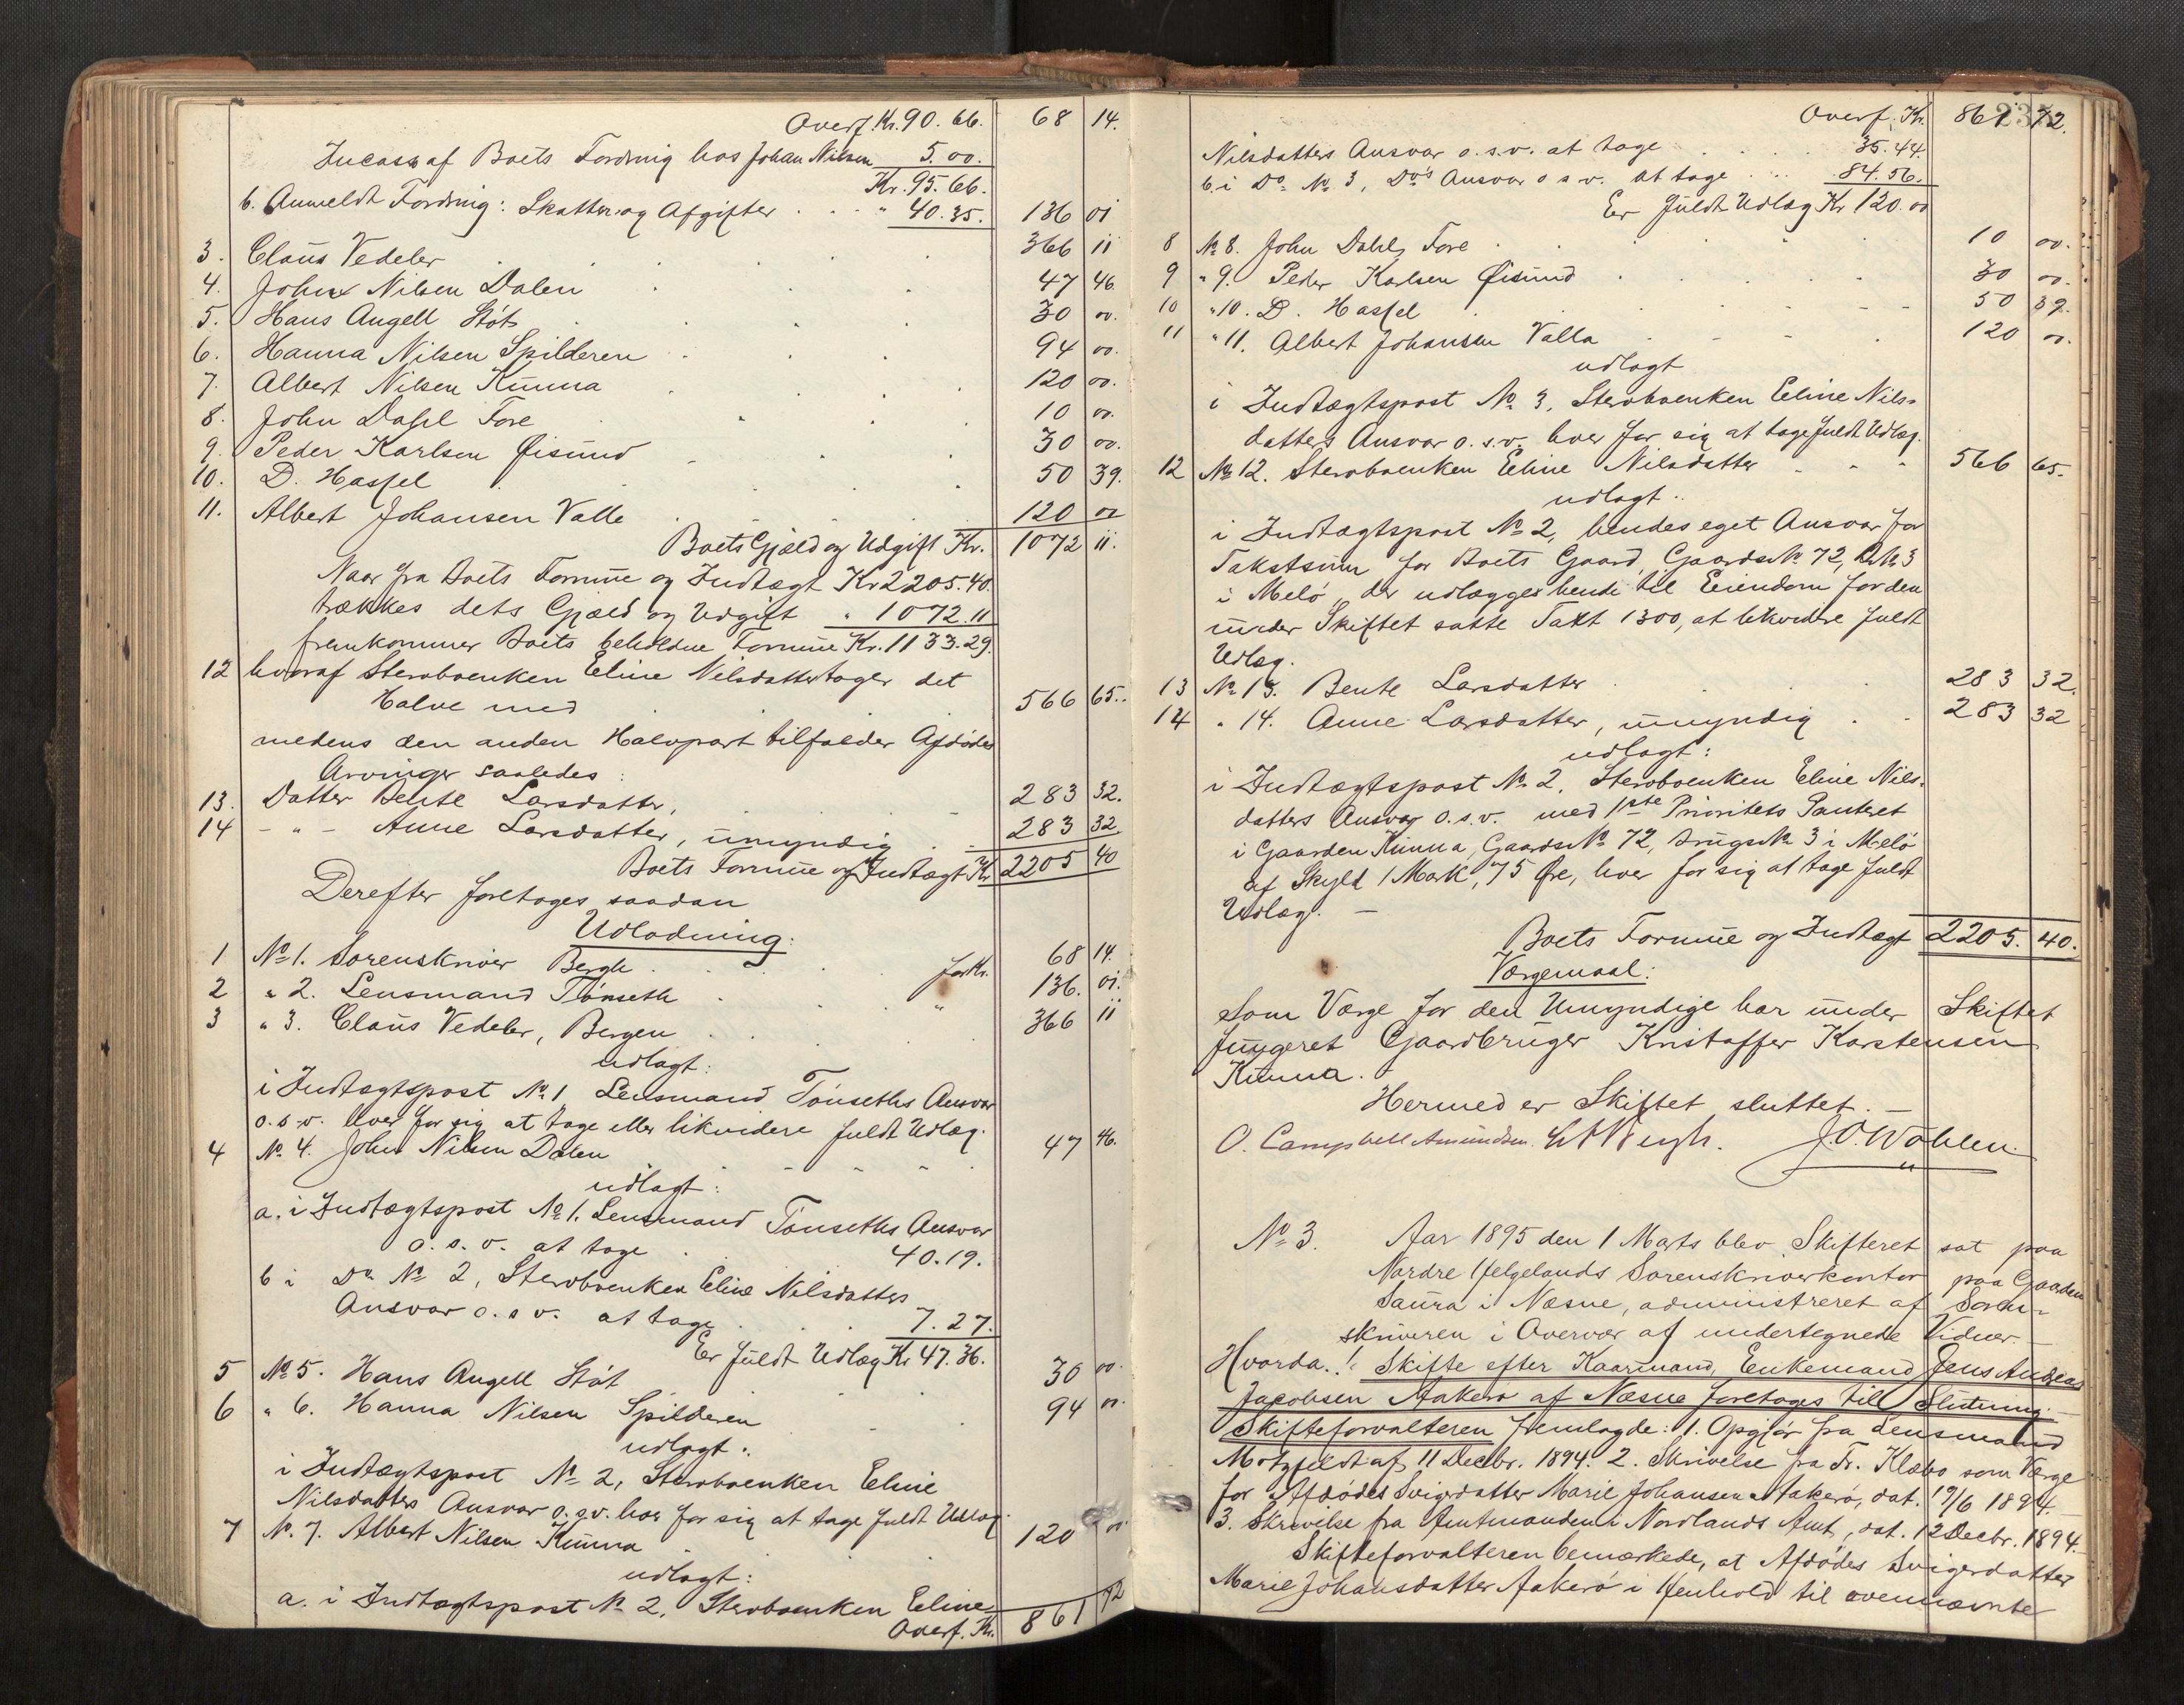 Overf. Kr. 90. 66. 68 14.
Incasso af Boets Fordring hos Johan Nilsen 5. 00.
Kr. 95. 66.
b. Anmeldt Fordring: Skatter og Afgifter . . . " 40. 35. 136 01
3. Claus Vedeler 366 11
4. John Nilsen Dalen 47 46.
5. Hans Angell Støt 30 00.
6. Hanna Nilsen Spilderen 94 00.
7. Albert Nilsen Kunna 120 00.
8. John Dahl Fore 10 00.
9. Peder Karlsen Øisund 30 00.
10. D. Hassel 50 39.
11. Albert Johansen Valle 120 00
Boets Gjæld og Udgift Kr. 1072 11.
Naar fra Boets Formue og Indtægt Kr 2205.40.
trækkes dets Gjæld og Udgift " 1072.11
fremkommer Boets beholdne Formue Kr. 1133.29.
12 hvoraf Stervboenken Eline Nilsdatter tager det
Halve med 566 65..
medens den anden Halvpart tilfalder Afdødes
Arvinger saaledes:
13. Datter Bente Larsdatter, 283 32.
14 - " - Anne Larsdatter, umyndig 283 32.
Boets Formue og Indtægt Kr 2205 40
Derefter foretoges saadan
Udlodning:
1 No 1. Sorenskriver Bergh . . . for Kr. 68 14.
2 " 2. Lensmand Tønseth . . " 136. 01.
3 " 3. Claus Vedeler, Bergen 366 11
udlagt:
i Indtægtspost No 1 Lensmand Tønseths Ansvar
o.s.v. hver for sig at tage eller likvidere fuldt Udlæg.
4 No. 4. John Nilsen Dalen 47 46.
udlagt:
a. i Indtægtspost No 1. Lensmand Tønseths Ansvar
o. s. v. at tage 40.19.
b i Do No 2, Stervboenken Eline Nilsdatters
Ansvar o. s v. at tage 7. 27.
Er fuldt Udlæg Kr 47. 36.
5 No 5. Hans Angell Støt 30 00.
6 " 6. Hanna Nilsen Spilderen 94 00.
udlagt:
i Indtægtspost No 2, Stervboenken Eline
Nilsdatters Ansvar o.s.v. hver for sig at tage fuldt Udlæg.
7 No. 7. Albert Nilsen Kunna 120 00
udlagt:
a. i Indtægtspost No 2. Stervboenken Eline
Overf. Kr. 861 72
Overf. Kr. 861 72.
Nilsdatters Ansvar o.s.v. at tage . . . . 35.44.
b. i Do No 3, Do's Ansvar o s v. at tage . . . 84.56.
Er fuldt Udlæg Kr 120.00
8 No 8. John Dahl, Fore 10 00.
9 " 9. Peder Karlsen Øisund 30 00.
10 " 10. D. Hassel 50 39.
11 " 11. Albert Johansen Valla 120 00.
udlagt
i Indtægtspost No 3. Stervboenken Eline Nils-
datters Ansvar o.s.v. hver for sig at tage fuldt Udlæg.
12 No 12. Stervboenken Eline Nilsdatter 566 65.
udlagt:
i Indtægtspost No 2, hendes eget Ansvar for
Takstsum for Boets Gaard, Gaards No 72, B. No 3
i Melø, der udlægges hende til Eiendom for den
under Skiftet satte Taxt 1300, at likvidere fuldt
Udlæg.
13 No 13. Bente Larsdatter 283 32.
14 " 14. Anne Larsdatter, umyndig 283 32
udlagt:
i Indtægtspost No 2. Stervboenken Eline Nils-
datters Ansvar o.s.v. med 1ste Prioritets Panteret
i Gaarden Kunna, Gaards No 72, Brugs No 3 i Melø
af Skyld 1 Mark, 75 Øre, hver for sig at tage fuldt
Udlæg. —
Boets Formue og Indtægt 2205. 40.
Værgemaal:
Som Værge for den Umyndige har under Skiftet
fungeret Gaardbruger Kristoffer Karstensen
Kunna. -
Hermed er Skiftet sluttet. —
O. Campbell Amundsen. Bergh. J. O. Wohlen.
No 3. Aar 1895 den 1 Marts blev Skifteret sat paa
Nordre Helgelands Sorenskriverkontor paa Gaarden
Saura i Næsne, administreret af Soren-
skriveren i Overvær af undertegnede Vidner. —
Hvorda.: Skifte efter Kaarmand, Enkemand Jens Andreas
Jacobsen Aakerø af Næsne foretoges till Slutning. —
Skifteforvalteren fremlagde: 1. Opgjør fra Lensmand
Motzfeldt af 11 Decbr. 1894. 2. Skrivelse fra Fr. Klæbo som Værge
for Afdødes Svigerdatter Marie Johansen Aakerø, dat. 19/6 1894.
3. Skrivelse fra Amtmanden i Nordlands Amt, dat. 12 Decbr. 1894.
Skifteforvalteren bemærkede, at Afdødes Svigerdatter
Marie Johansdatter Aakerø i Henhold til ovennævnte